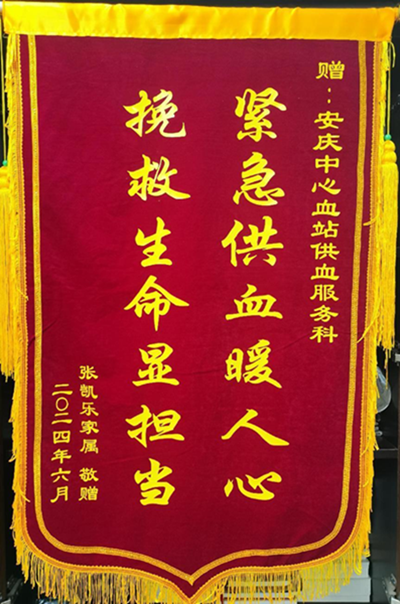 赠：安庆中心血站供血服务科
紧急供血暖人心
挽救生命显担当
张凯乐家属 敬赠
二〇二四年六月